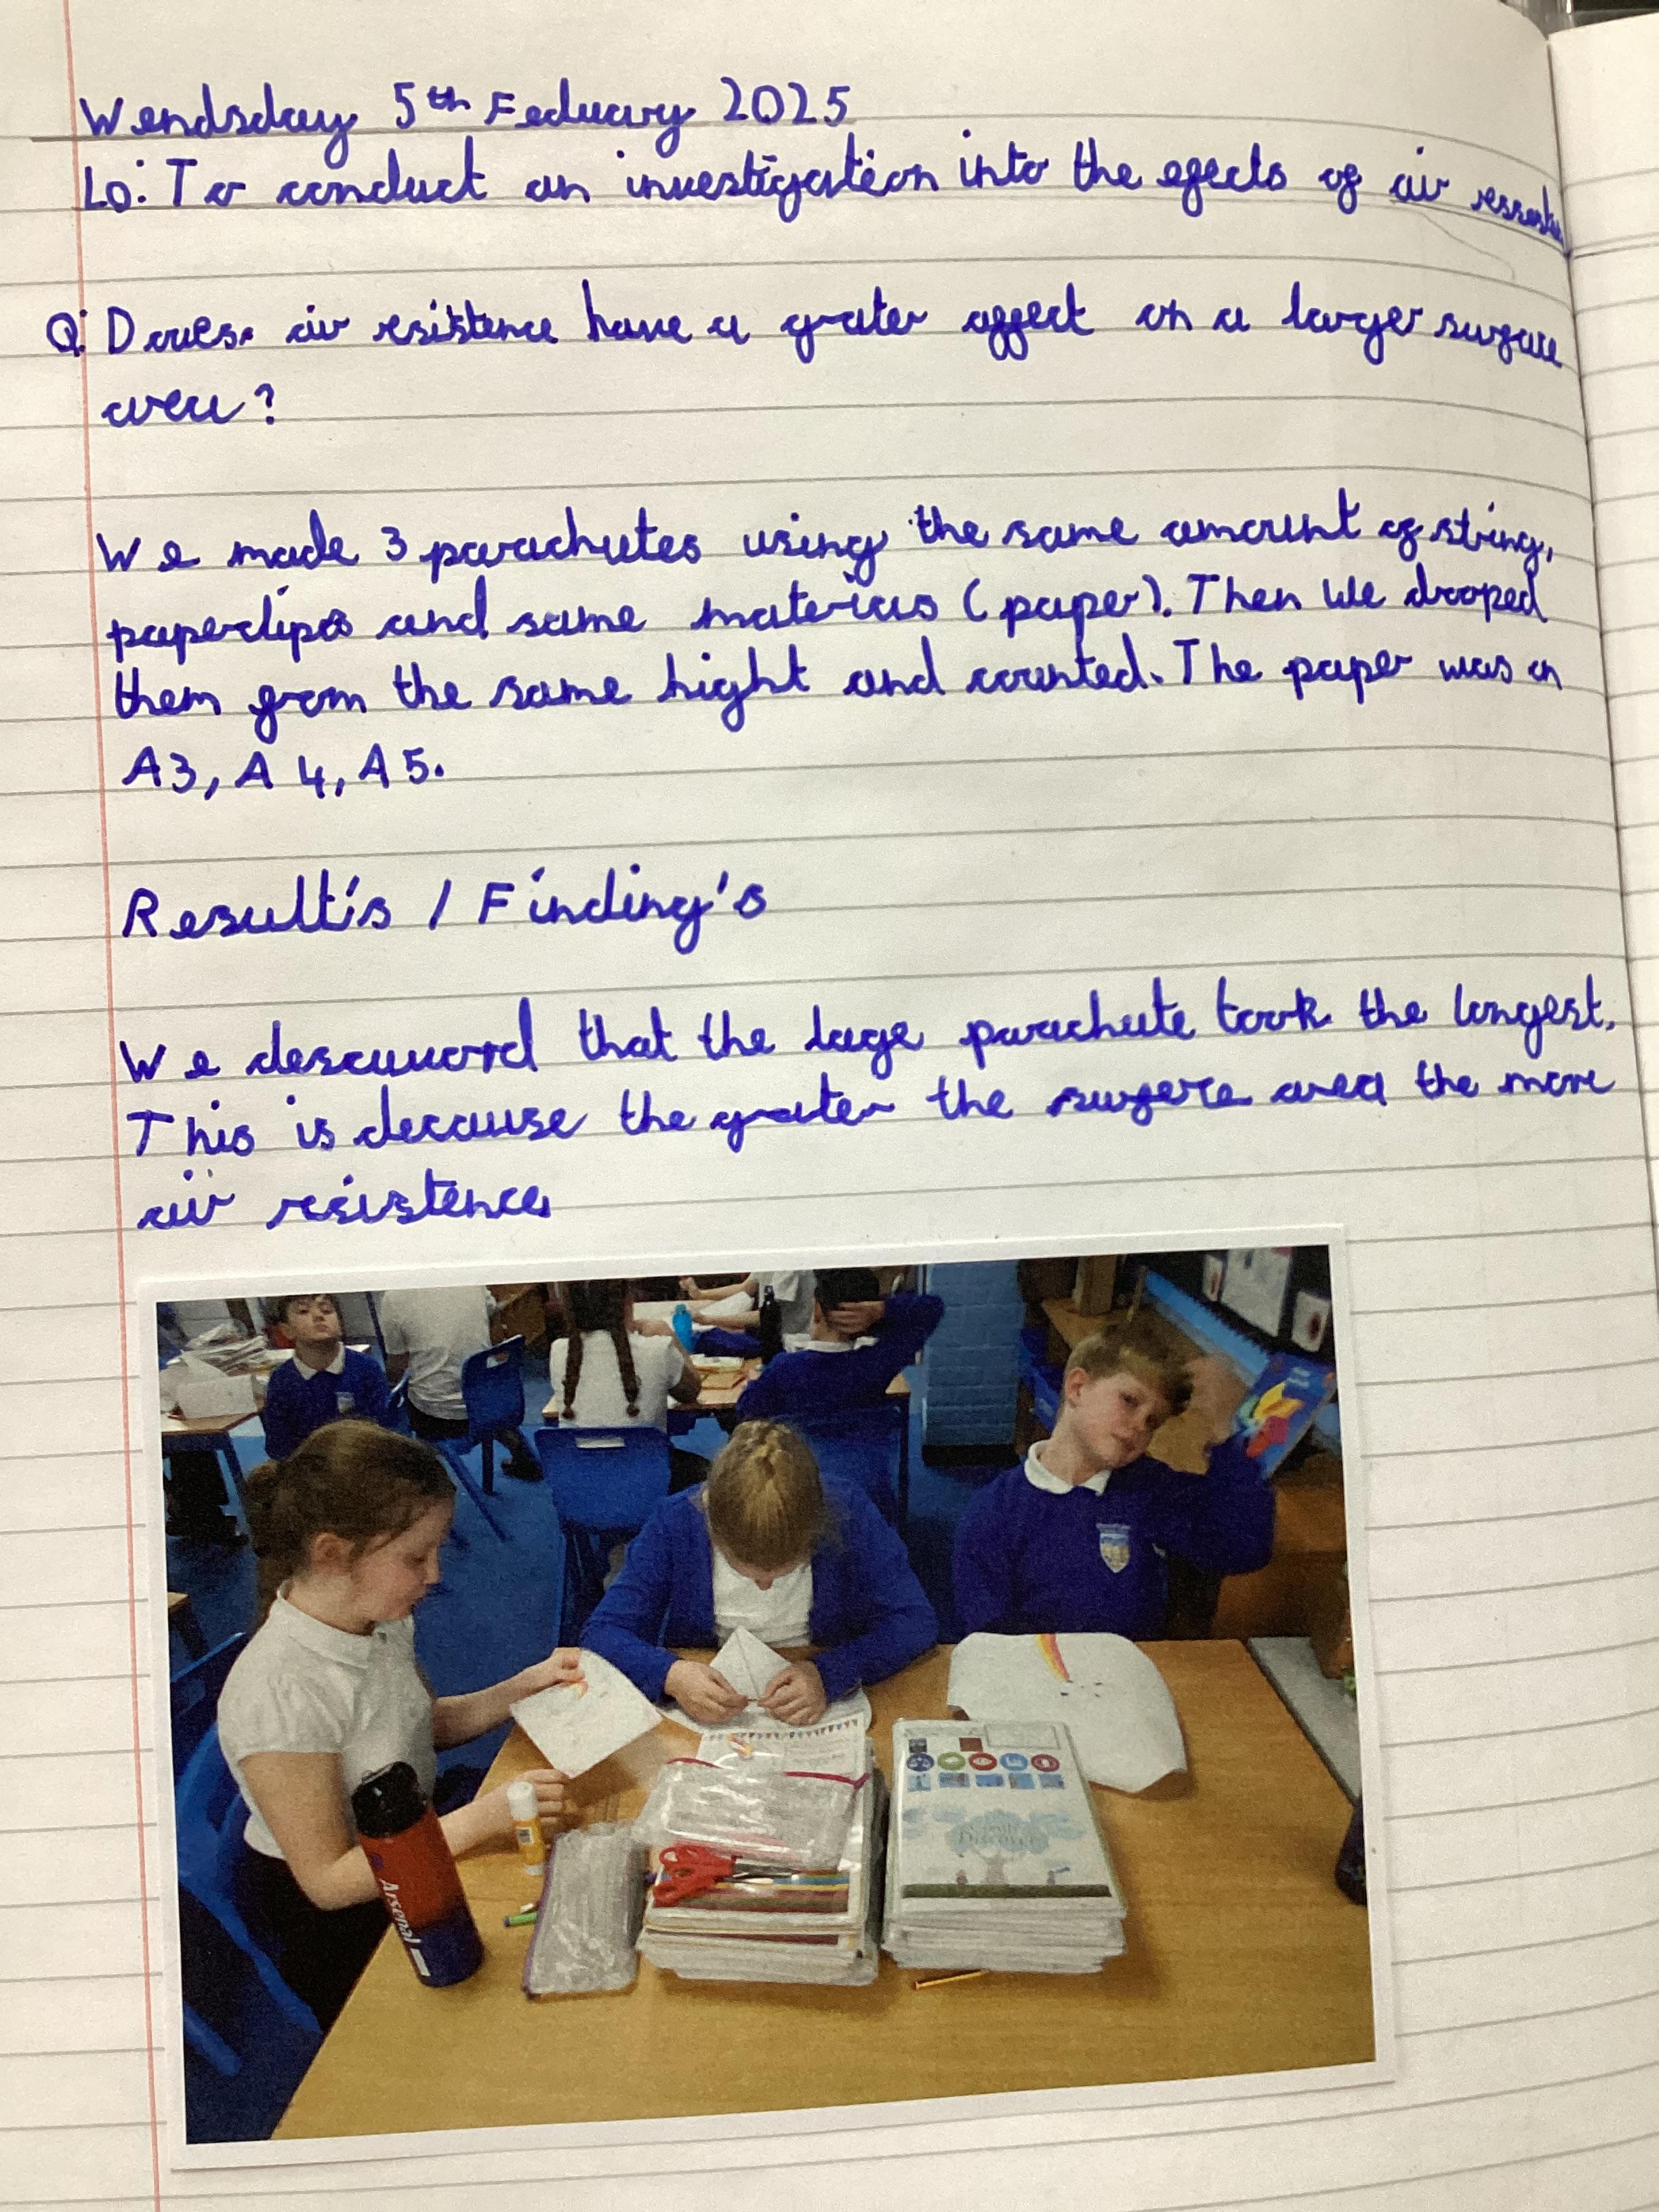 Wendsday 5th Feduary 2025
Lo: To conduct an investigation into the efects of air
Q: Does air resistence have a grater affect on a larger surface
area?
We made 3 parachutes using the same amount of string,
paperclips and same materias (paper). Then We drooped
them from the same hight and counted. The paper was in
A3, A4, A5.
Result's / Finding's
We that the large parachute took the longest.
This is decause the grater the surfere area the more
air resistence
Arsenal
Discover